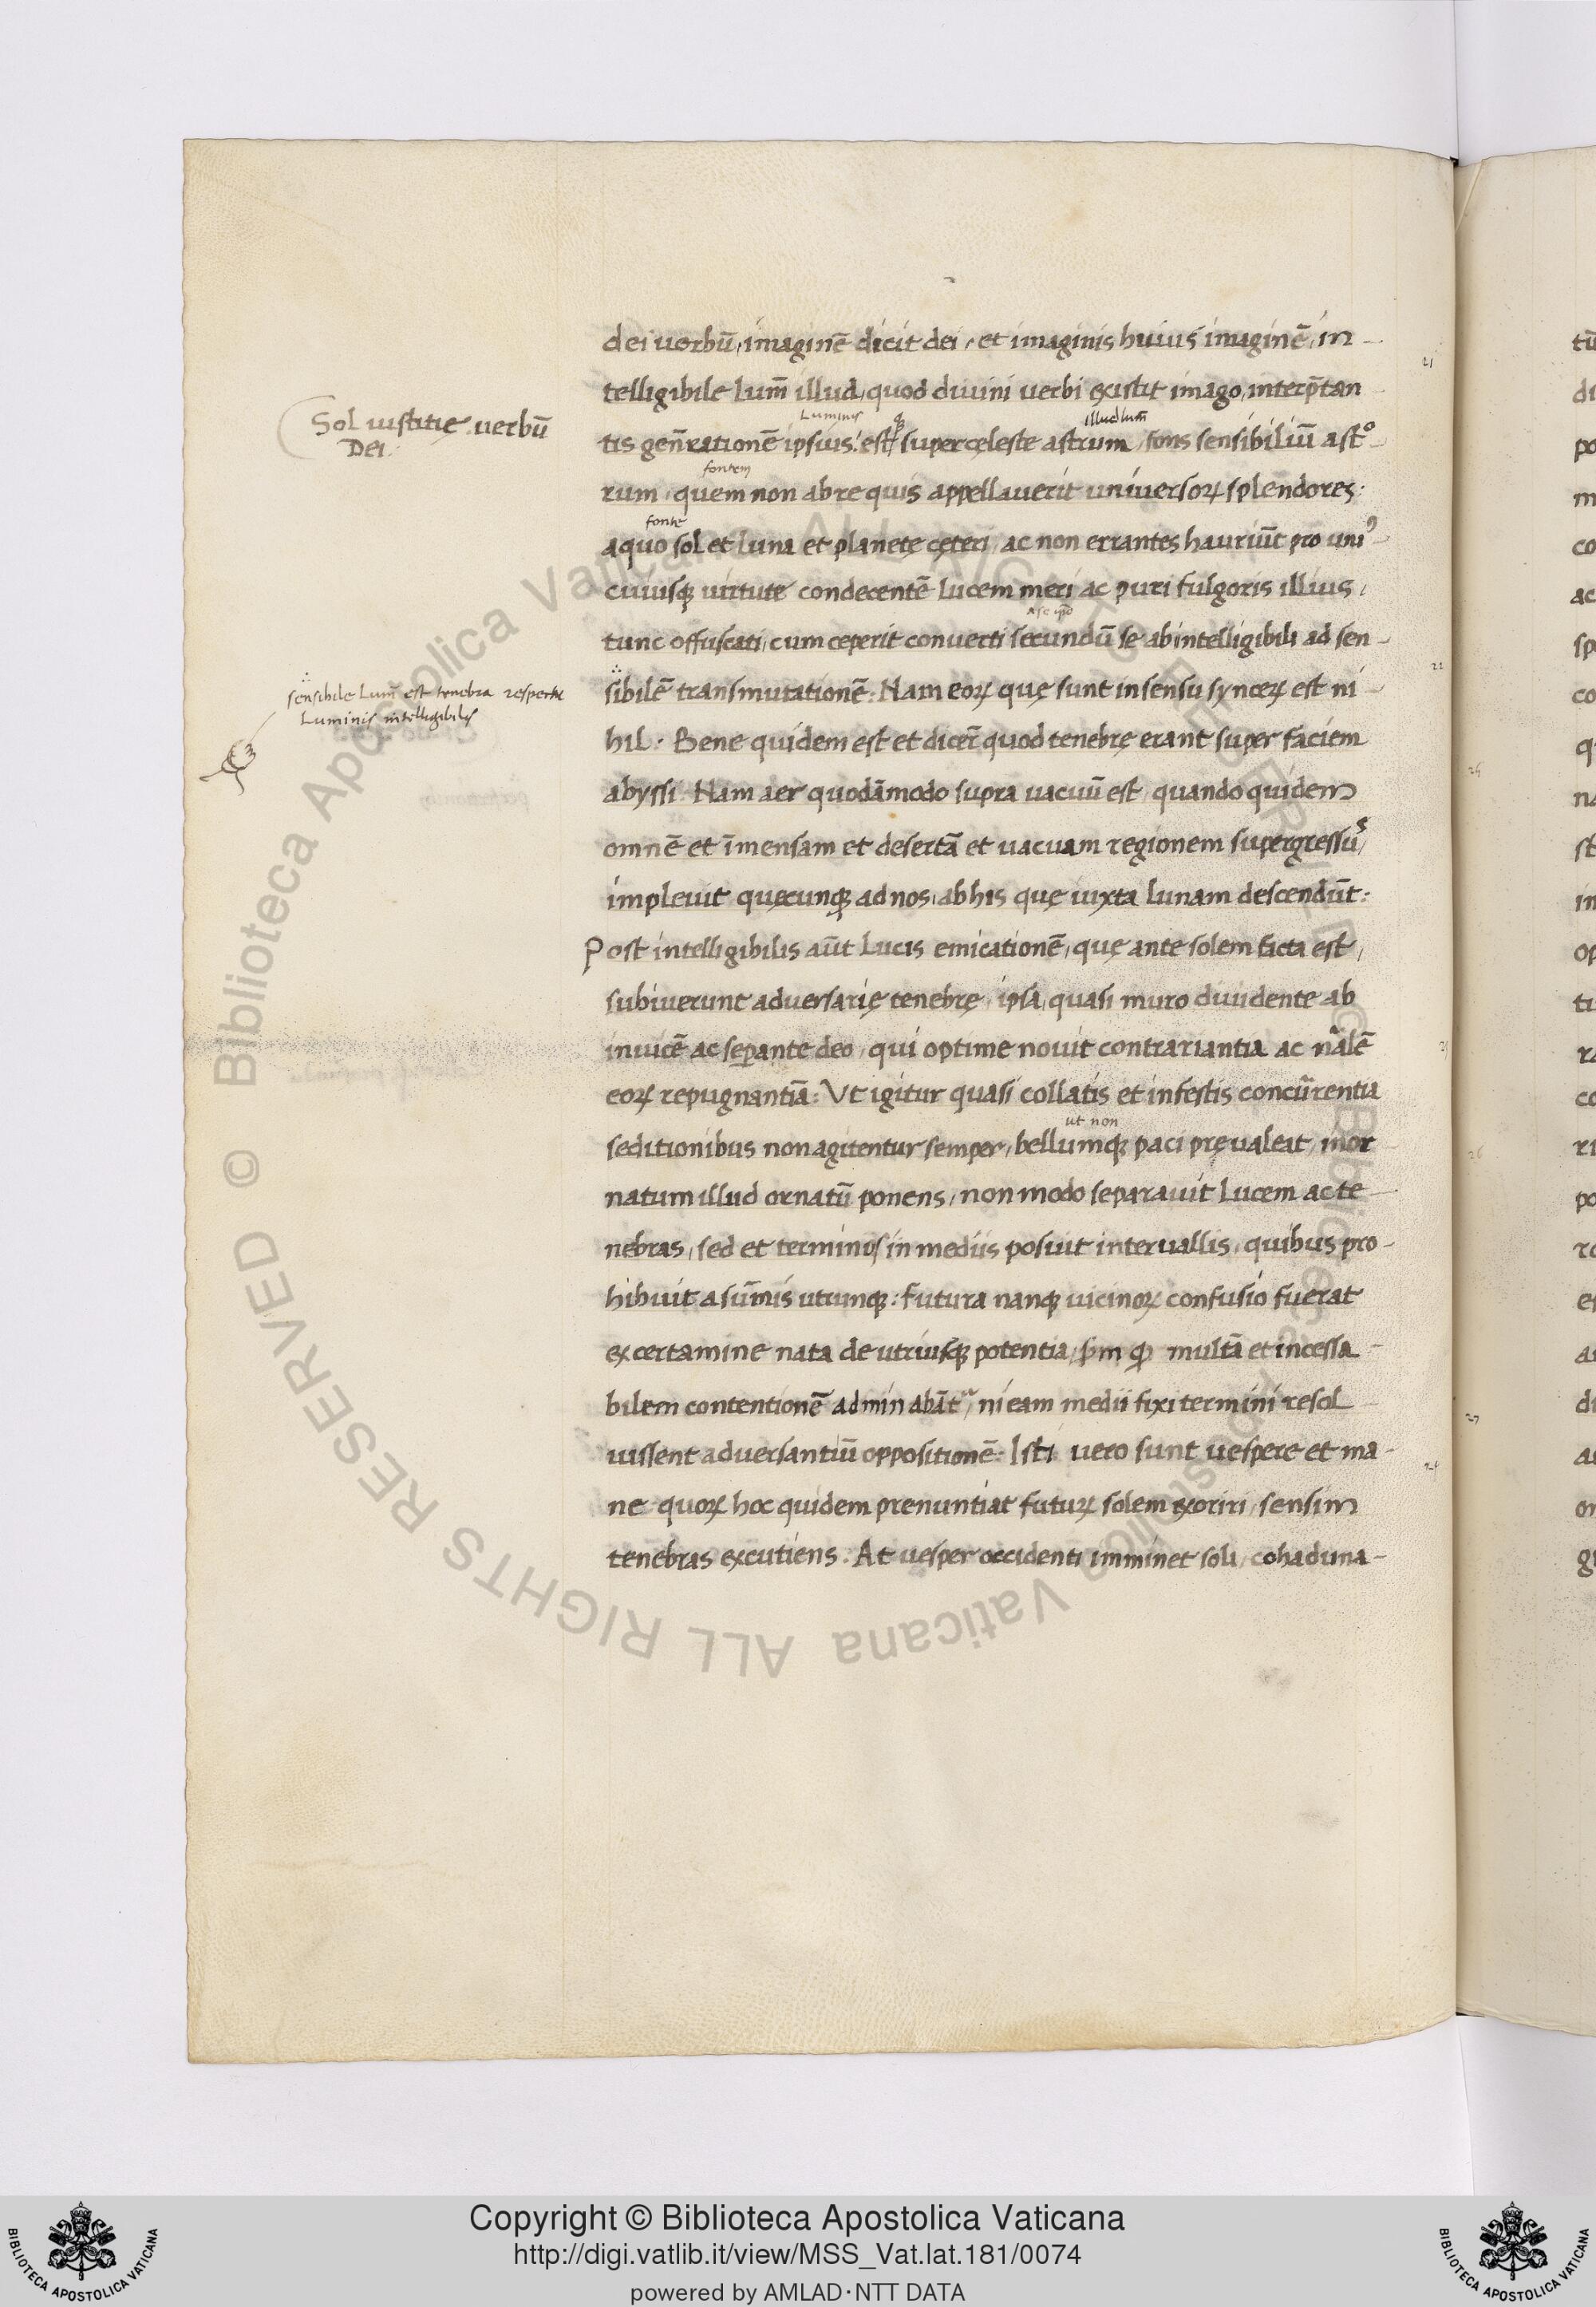 dei uerbū, imaginē dicit dei, et imaginis huius imaginē, in-
telligibile lum̄ illud, quod diuini uerbi existit imago, interp̄tan
Luminis
illud lum̄
tis gen̄rationē ipsius: est supercęleste astrum, fons sensibiliū astº-
fontem
rum, quem non abre quis appellauerit uniuersoꝝ splendores:
fonte
aquo sol et luna et planetę cęteri, ac non errantes hauriūt pro uniꝰ-
cuiusqꝫ uirtute condecentē lucem meri ac puri fulgoris illius,
tunc offuscati, cum ceperit conuerti secundū se ab intelligibili ad sen-
sibilē transmutationē: Nam eoꝝ quę sunt in sensu synceꝝ est ni-
hil: Bene quidem est et dicer̄ quod tenebrę erant super faciem
abyssi. Nam aer quodāmodo supra uacuū est, quando quidem
omnē et īmensam et desertā et uacuam regionem supergressus,
impleuit quęcunqꝫ ad nos, ab his quę iuxta lunam descendūt:
Post intelligibilis aūt lucis emicationē, quę ante solem facta est,
subiuerunt aduersarię tenebrę, ipsa, quasi muro diuidente ab
inuicē ac seꝑante deo, qui optime nouit contrariantia ac nālē
eoꝝ repugnantiā: Vt igitur quasi collatis et infestis concūrentia
ut non
seditionibus non agitentur semper, bellumqꝫ paci pręualeat, inor
natum illud ornatū ponens, non modo separauit lucem ac te-
nebras, sed et terminos in mediis posuit interuallis, quibus pro-
hibuit a sūmis utrunqꝫ: futura nanqꝫ uicinoꝝ confusio fuerat
ex certamine nata de utriusqꝫ potentia, multā et incessa-
bilem contentionē ad min abāt, ni eam medii fixi termini resol
uissent aduersantiū oppositionē: Isti uero sunt uespere et ma-
ne quoꝝ hoc quidem prenuntiat futuꝝ solem exoriri, sensim
tenebras excutiens. At uesper occidenti imminet soli, cohaduna-
Sol iustitię uerbū
Dei.
sensibile lum̄ est tenebra respectu
Luminis intelligibilis
21
22
24
25
26
27
© Biblioteca Apostolica Vaticana ALL RIGHTS RESERVED
© Biblioteca Apostolica Vaticana ALL RIGHTS RESERVED
Copyright © Biblioteca Apostolica Vaticana
http://digi.vatlib.it/view/MSS_Vat.lat.181/0074
powered by AMLAD·NTT DATA
BIBLIOTECA APOSTOLICA VATICANA
BIBLIOTECA APOSTOLICA VATICANA